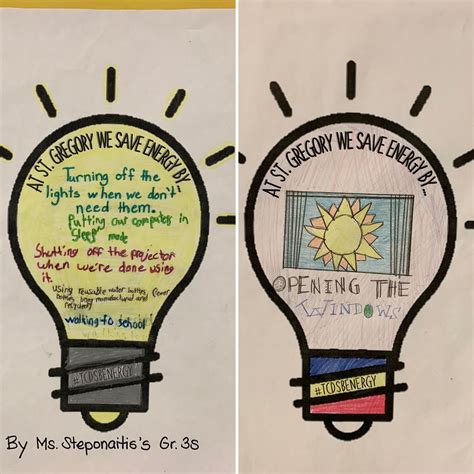 AT ST. GREGORY WE SAVE ENERGY BY
Turning off the
lights when we don't
need them.
Putting our computers in
sleep mode
Shutting off the projector
when we're done using
it.
Using reusable water bottles, (fewer
bottles being manufactured and
recycled)
walking to school
#TCDSBENERGY
By Ms. Steponaitis's Gr. 3s
AT ST. GREGORY WE SAVE ENERGY BY...
OPENING THE
WINDOWS
#TCDSBENERGY